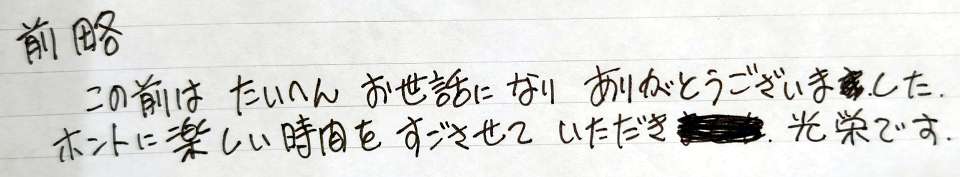 前略
この前は たいへん お世話に なり ありがとうございました.
ホントに楽しい時間を すごさせて いただき 光栄です.